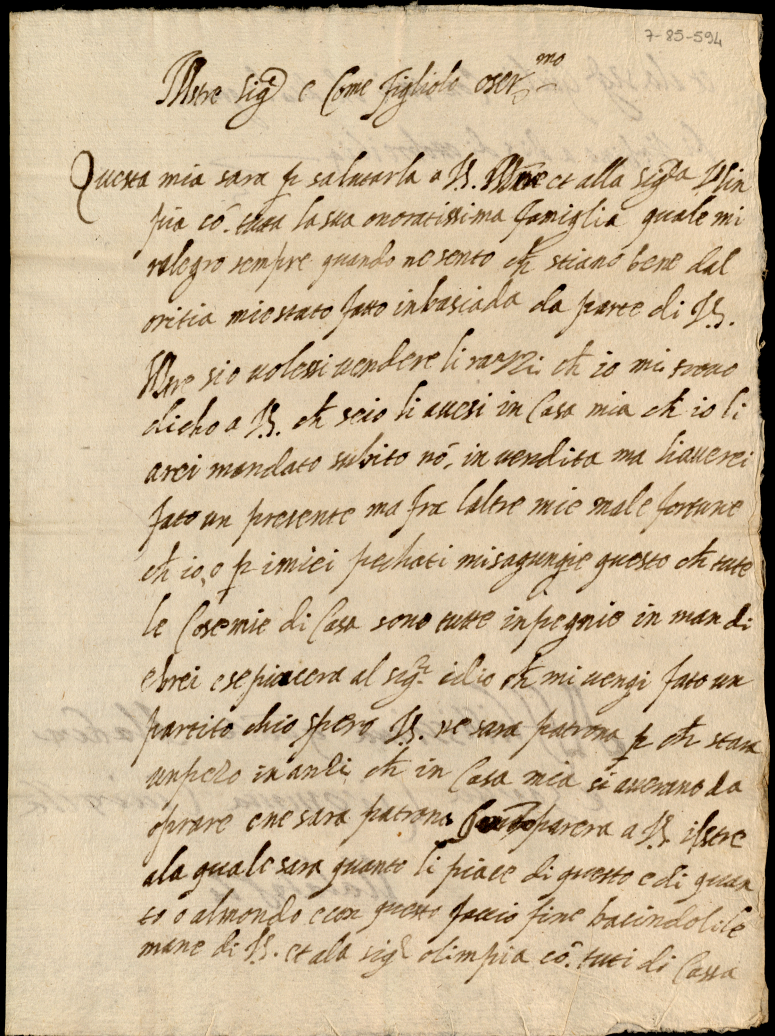 7-85-594
Illstre Sigre e Come figliolo oser.mo
Questa mia sara p salutarla a V.S. Illre et alla sigra Olin
pia cō tuta la sua onoratissima famiglia quale mi
ralegro sempre quando ne sento ch stiano bene dal
oritia mi e stato fatto inbasiada da parte di V.S.
Illre sio volessi vendere li razzi ch io mi trovo
dicho a V.S. ch se io li avesi in Casa mia ch io li
arei mandato subito nō in vendita ma li averei
fato un presente ma fra laltre mie male fortune
ch io o p i miei pechati mi sagungie questo ch tute
le Cose mie di Casa sono tutte in pegnio in man di
ebrei e se piacera al sigre idio ch mi vengi fato un
partito chio spero V.S. ne sara patrona p ch stara
un pezo inanzi ch in Casa mia si averano da
oprare e ne sara patrona parera a V.S. ilstre
ala quale sara quanto li piace di questo e di quan
to o al mondo e con questo faccio fine bacindoli le
mane di V.S. et ala sigra olimpia cō tuti di Cassa